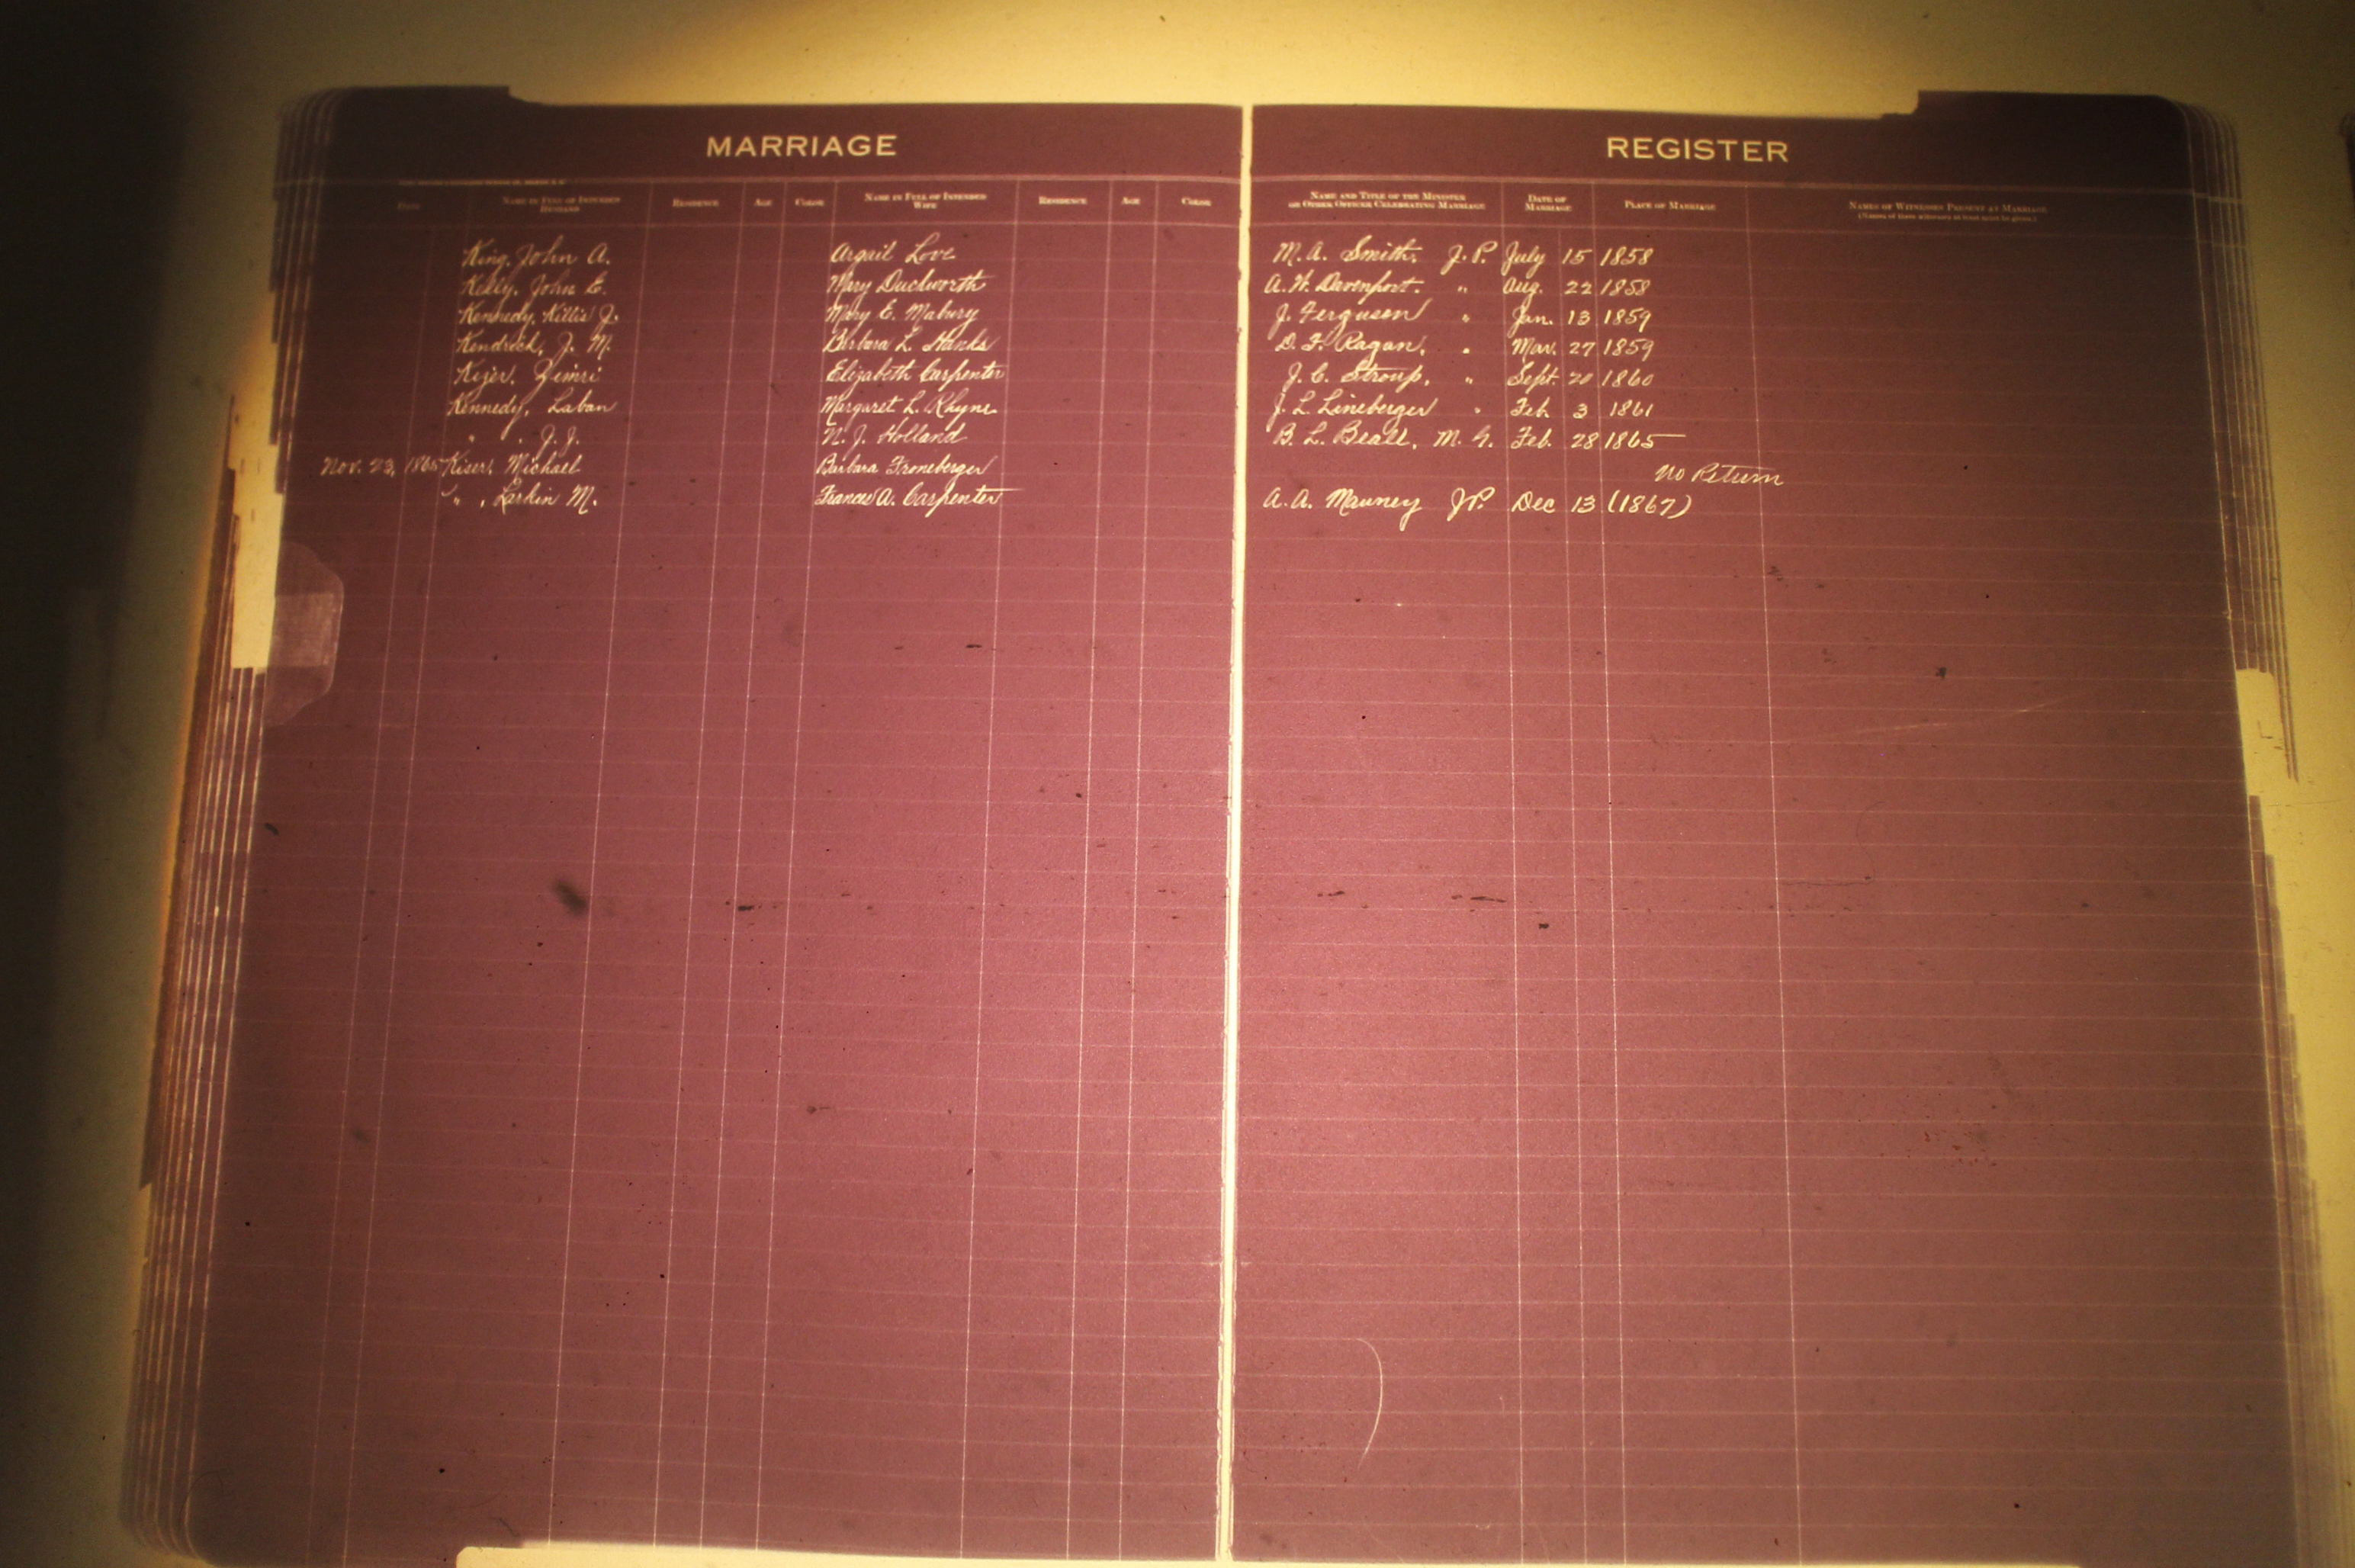 MARRIAGE REGISTER
DATE NAME IN FULL OF INTENDED HUSBAND RESIDENCE AGE COLOR NAME IN FULL OF INTENDED WIFE RESIDENCE AGE COLOR NAME AND TITLE OF THE MINISTER OR OTHER OFFICER CELEBRATING MARRIAGE DATE OF MARRIAGE PLACE OF MARRIAGE NAMES OF WITNESSES PRESENT AT MARRIAGE (Names of three witnesses at least must be given.)
King, John A. Argail Love M. A. Smith, J. P. July 15 1858
Kelly, John E. Mary Duckworth A. W. Davenport. " Aug. 22 1858
Kennedy, Killis J. Mary E. Mabury J. Ferguson " Jan. 13 1859
Kendrick, J. M. Barbara L. Hanks D. F. Ragan, " Mar. 27 1859
Kizer, Zimri Elizabeth Carpenter J. C. Stroup, " Sept. 20 1860
Kennedy, Laban Margaret L. Rhyne J. L. Lineberger " Feb 3 1861
" , J. J. N. J. Holland B. L. Beall, M. G. Feb. 28 1865
Nov. 23, 1865 Kiser, Michael Barbara Froneberger No Return
" , Larkin M. Frances A. Carpenter A. A. Mauney JP. Dec 13 (1867)